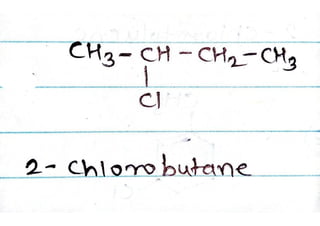 CH3-CH-CH2-CH3
|
Cl
2-chlorobutane